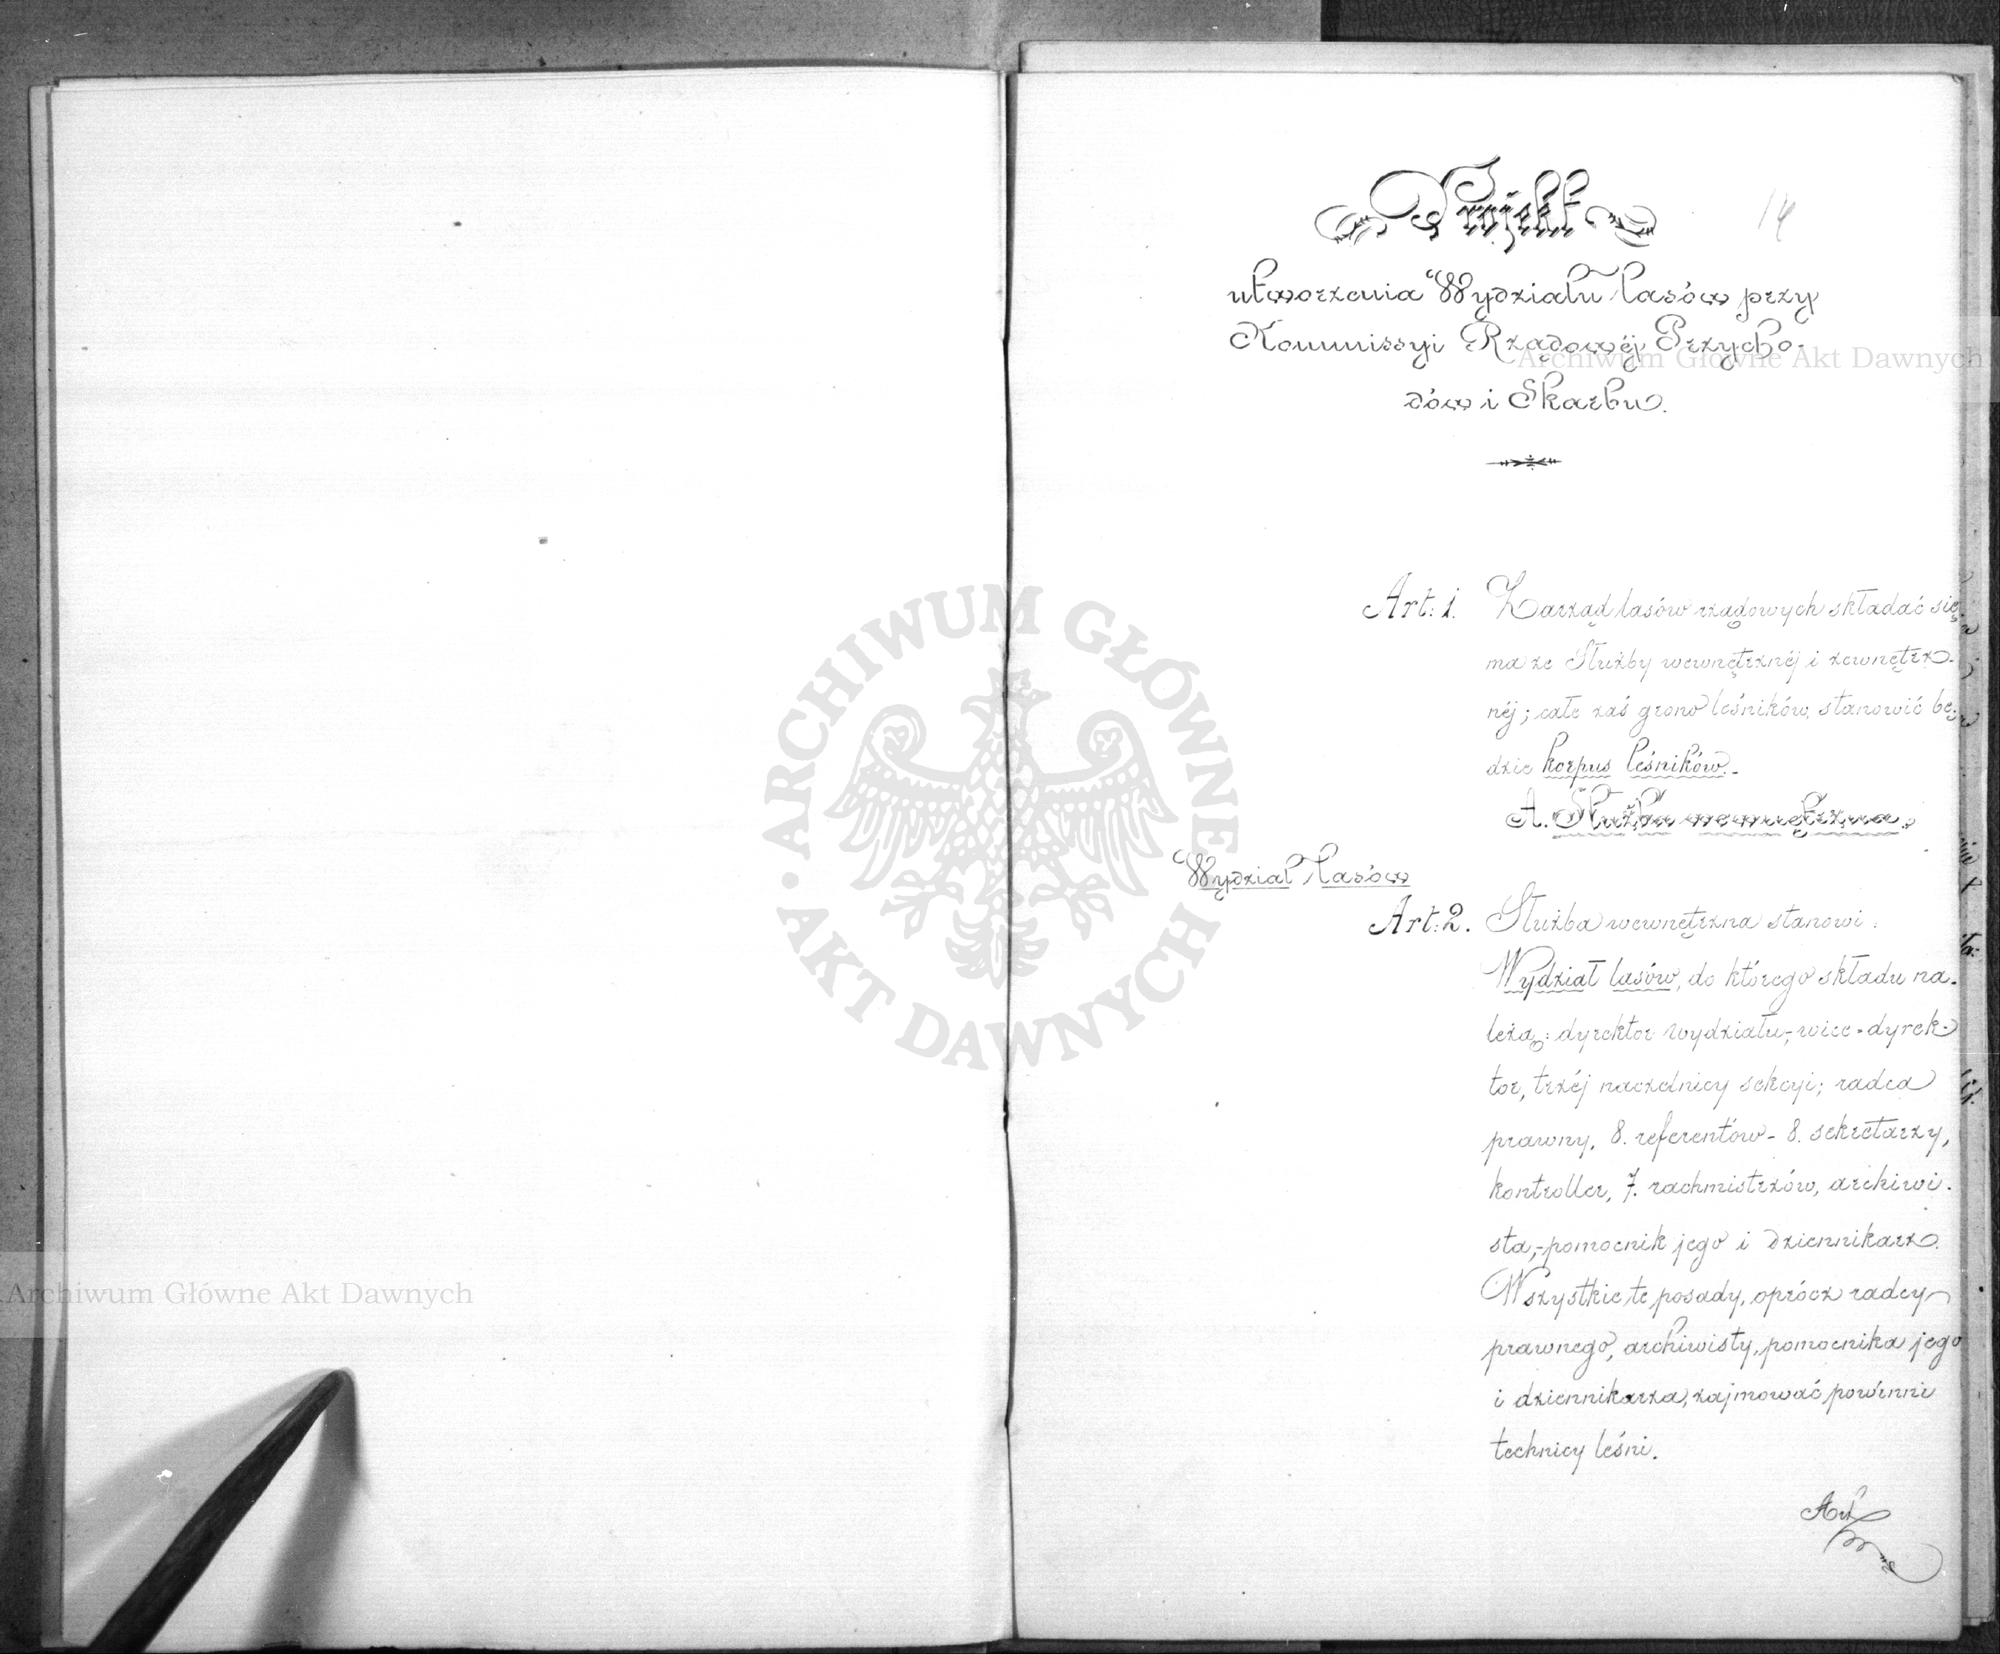 Projekt
14
utworzenia Wydziału lasów przy
Kommissyi Rządowéj Przycho-
dów i Skarbu.
Art: 1. Zarząd lasów rządowych składać się
ma ze Służby wewnętrznéj i zewnętrz-
néj; całe zaś grono leśników, stanowić bę-
dzie korpus leśników.-
A. Służba wewnętrzna.
Wydział lasów
Art: 2. Służba wewnętrzna stanowi:
Wydział lasów, do którego składu na-
leżą: dyrektor wydziału,- wice-dyrek-
tor, trzéj naczelnicy sekcyi; radca
prawny, 8. referentów- 8. sekretarzy,
kontroller, 7. rachmistrzów, archiwi-
sta,- pomocnik jego i dziennikarz.
Wszystkie te posady, oprócz radcy
prawnego, archiwisty, pomocnika jego
i dziennikarza, zajmować powinni
technicy leśni.
Art
Archiwum Główne Akt Dawnych
Archiwum Główne Akt Dawnych
ARCHIWUM GŁÓWNE AKT DAWNYCH